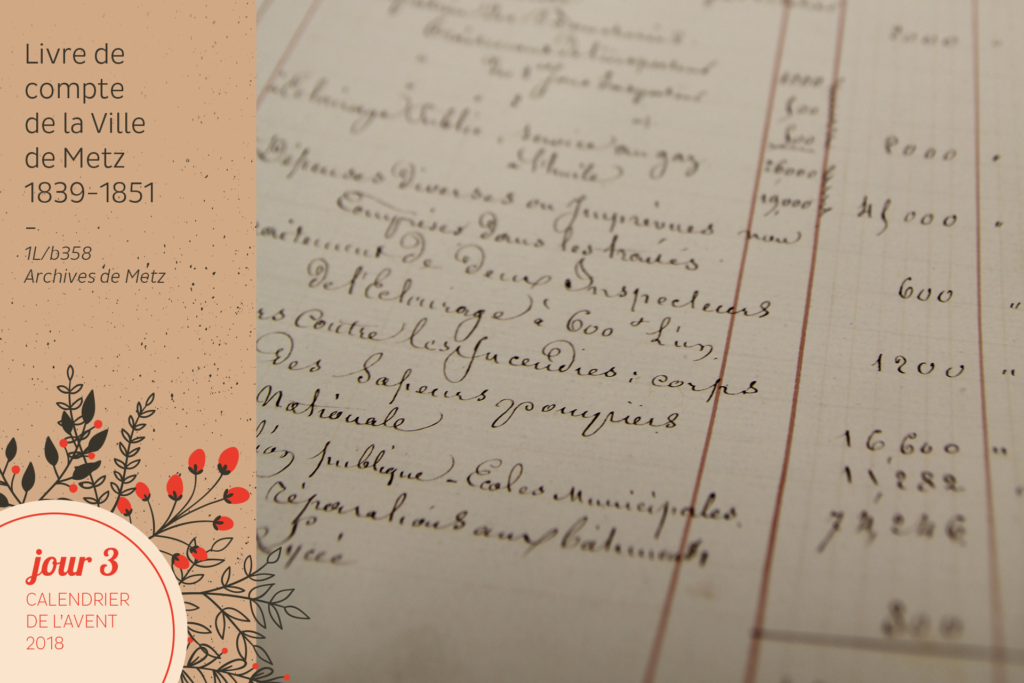 Livre de
compte
de la Ville
de Metz
1839-1851
–
1L/b358
Archives de Metz
jour 3
CALENDRIER
DE L'AVENT
2018
2000 "
Traitement de l'inspecteur
1000
500
Eclairage Public, service au gaz 500 8000 "
à l'huile 26000
19,000 45,000 "
Dépenses diverses ou Imprévues non
Comprises dans les traités 600 "
traitement de deux Inspecteurs
de l'Eclairage à 600 f l'un. 1200 "
rs contre les Incendies : corps
des Sapeurs pompiers 16,600 "
Nationale 11,282
ion publique - Ecoles Municipales. 74,246
réparations aux bâtiments
Lycée 300